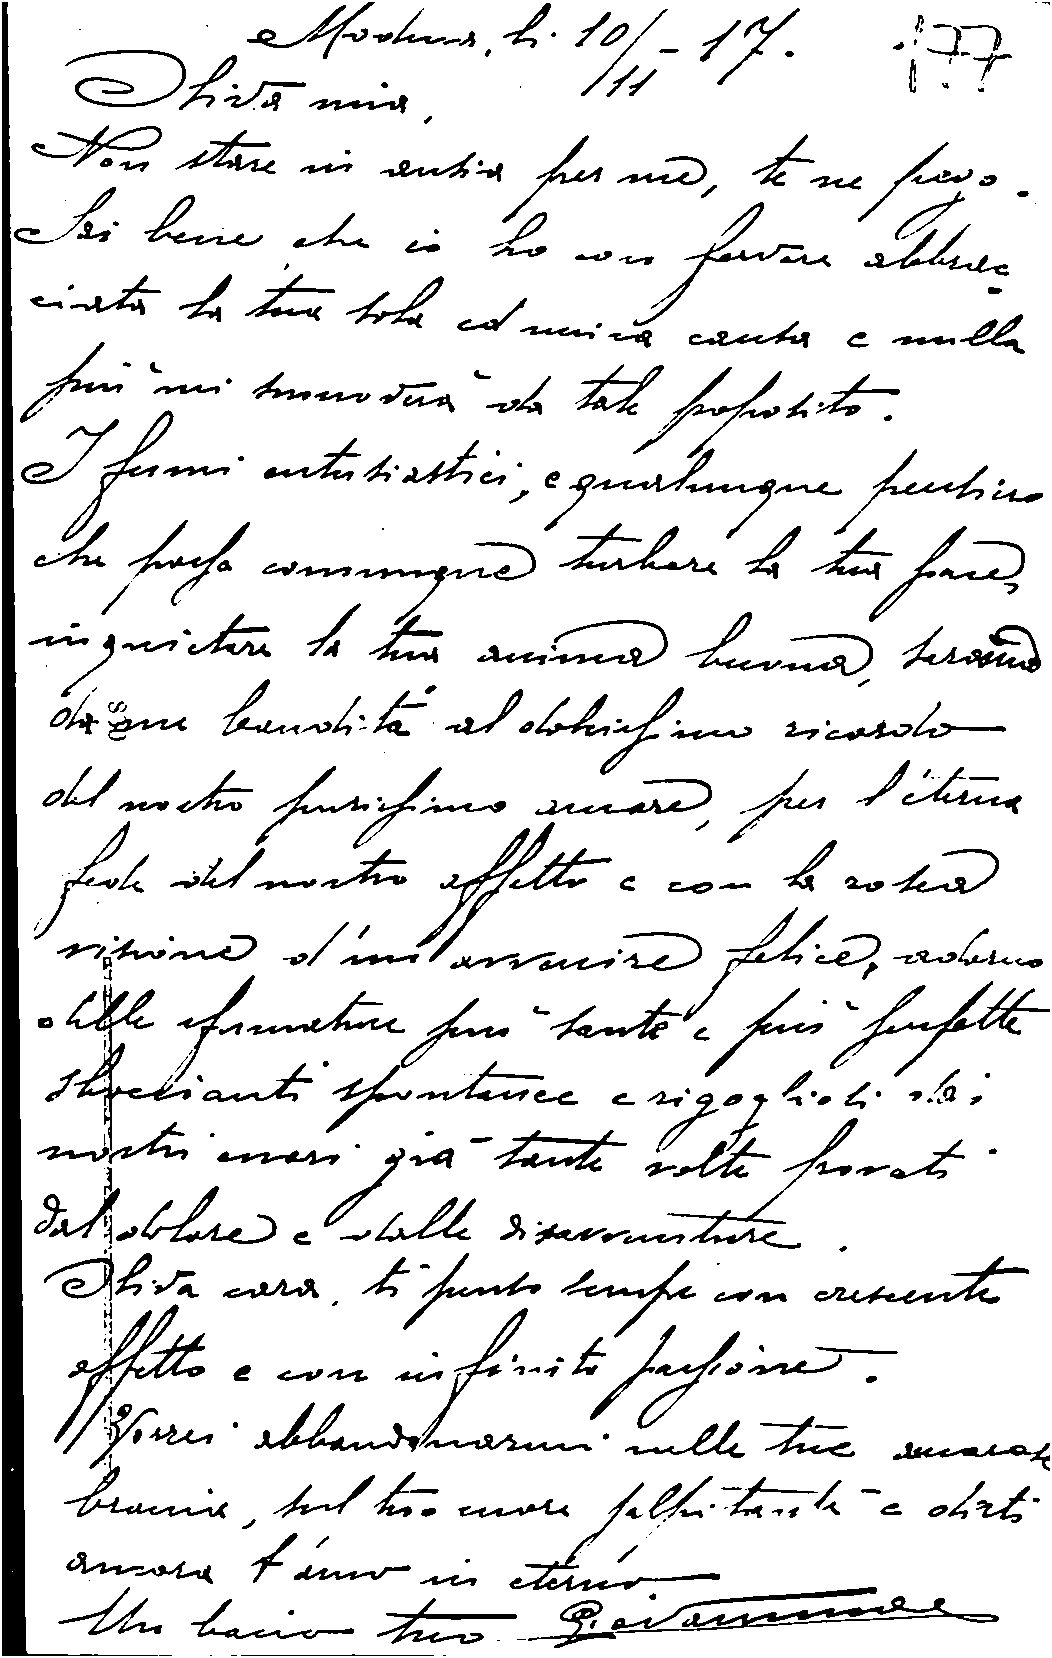 Modena, li 10/11 - 17. 177
Oliva mia,
Non stare in ansia per me, te ne prego.
Sai bene che io ho con fervore abbrac=
ciata la tua sola ed unica causa e nulla
più mi smuoverà da tale proposito.
I fumi entusiastici, e qualunque pensiero
che possa comunque turbare la tua pace,
inquietare la tua anima buona, saranno
da me banditi al dolcissimo ricordo
del nostro purissimo amore, per l'eterna
fede del nostro affetto e con la rosea
visione d'un avvenire felice, adorno
delle sfumature più sante e più perfette
sboccianti spontanee e rigogliosi dai
nostri cuori già tante volte provati
dal dolore e dalle disavventure.
Oliva cara, ti penso sempre con crescente
affetto e con infinita passione.
Vorrei abbandonarmi nelle tue amorose
braccia, sul tuo cuore palpitante e dirti
ancora t'amo in eterno.
Un bacio tuo